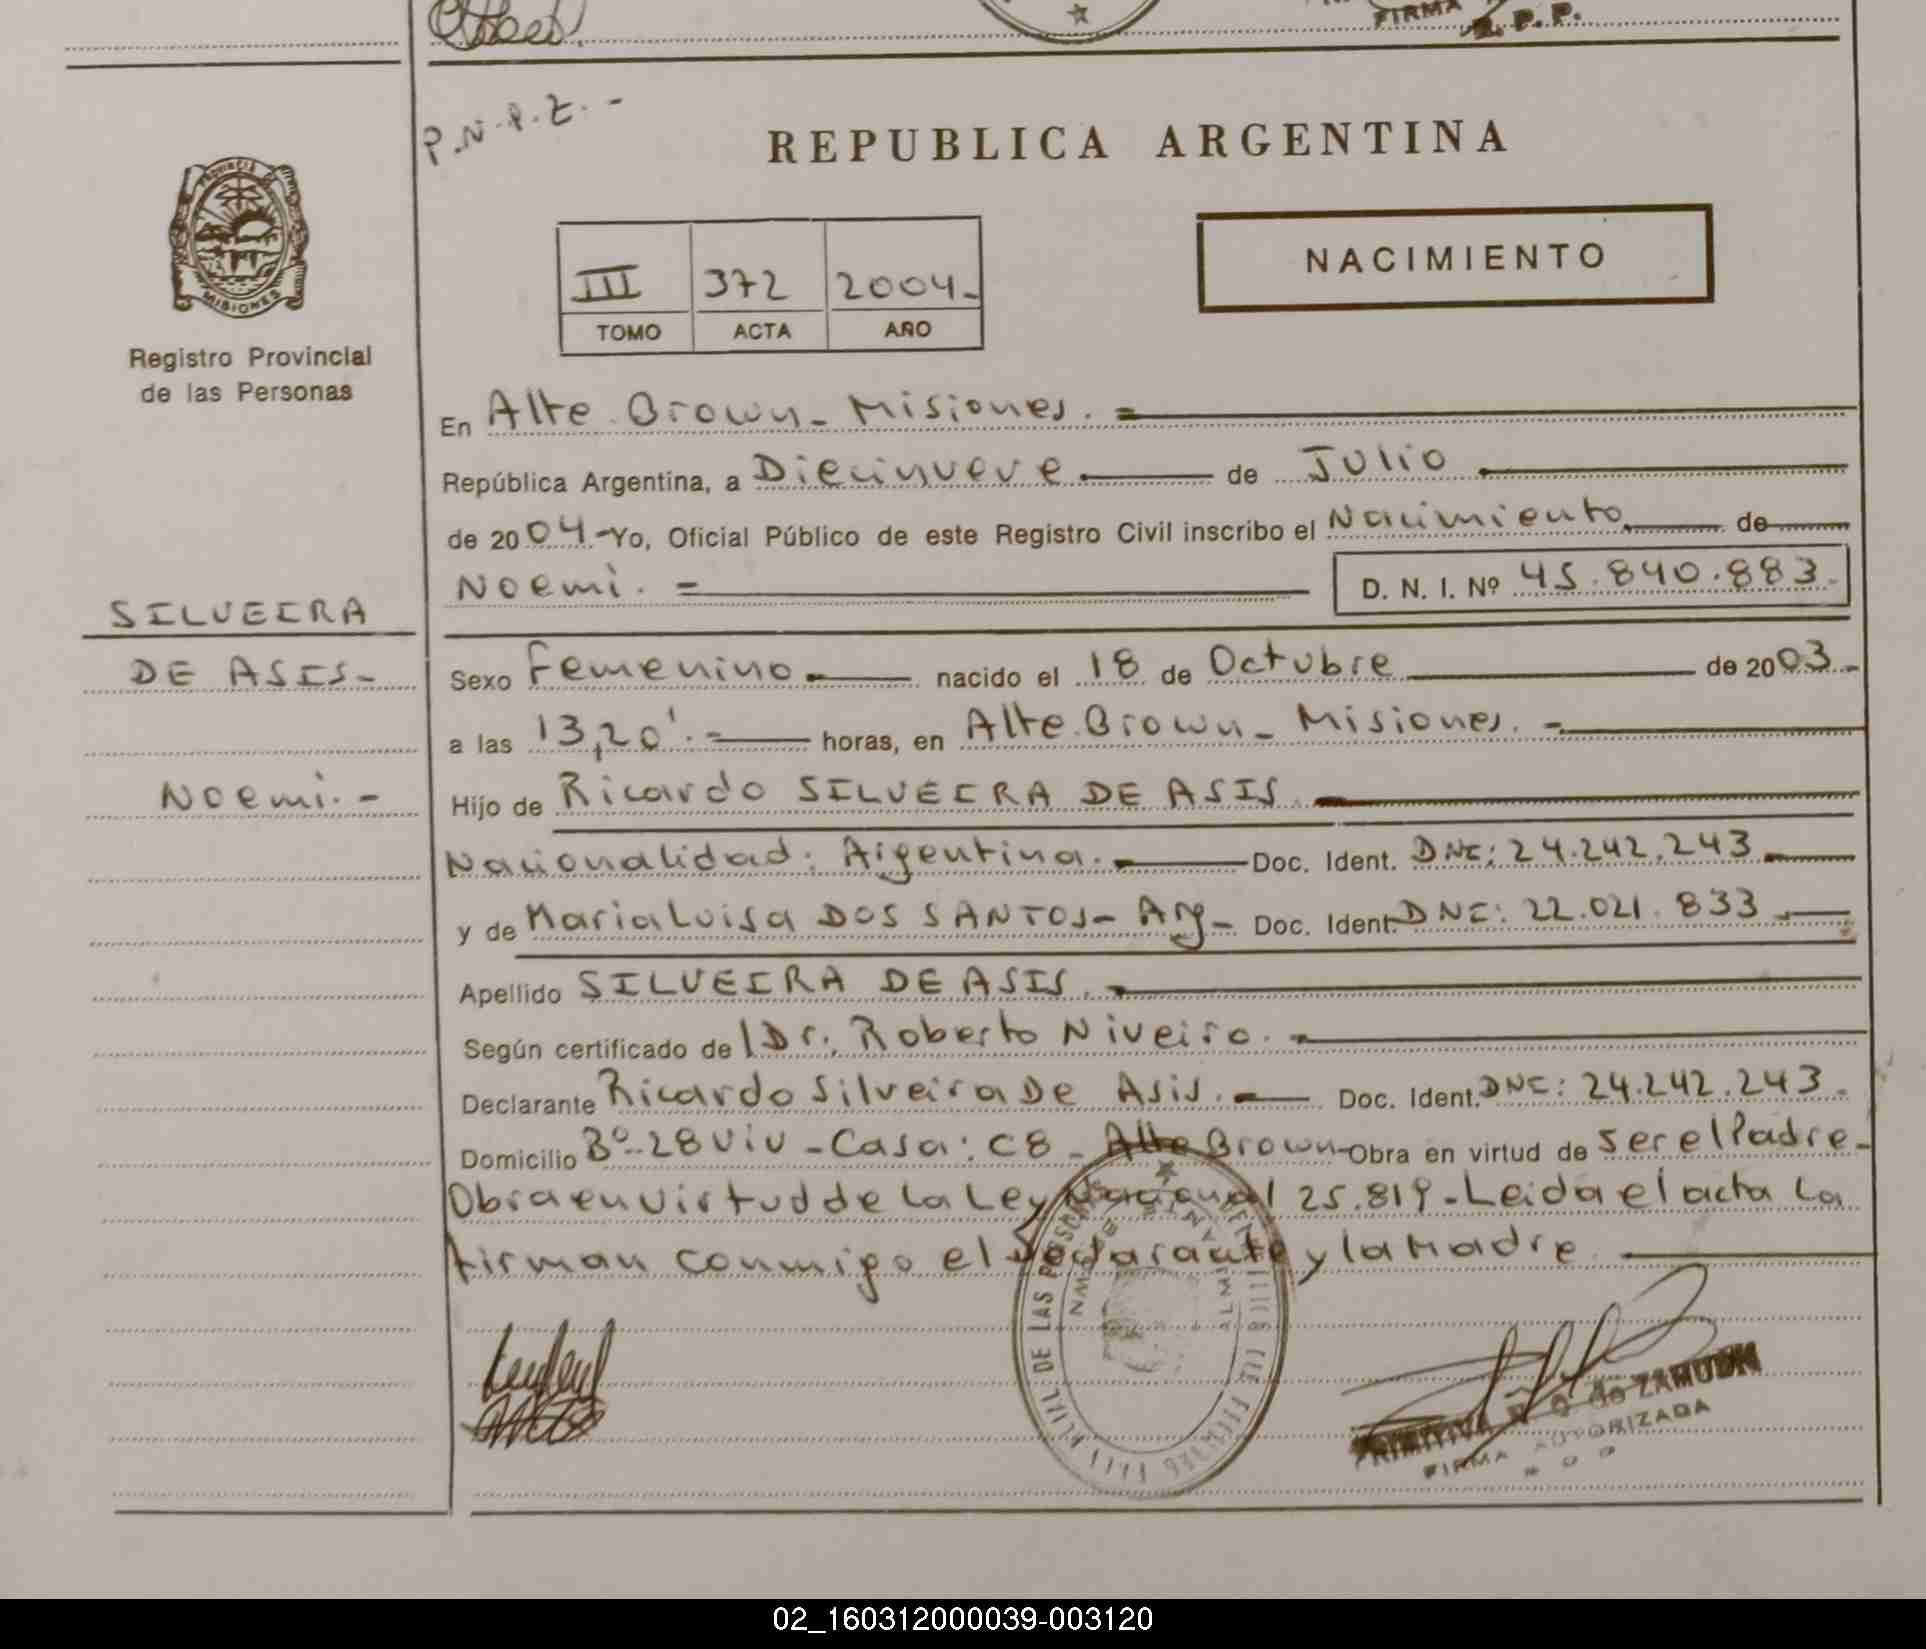 FIRMA
R. P. P.
P.N.P.E.-
REPUBLICA ARGENTINA
PROVINCIA DE
MISIONES
III 372 2004-
TOMO ACTA AÑO
NACIMIENTO
Registro Provincial
de las Personas
En Alte. Brown - Misiones. =
República Argentina, a Diecinueve de Julio
de 2004.- Yo, Oficial Público de este Registro Civil inscribo el Nacimiento de
Noemi. = D. N. I. Nº 45.840.883.-
SILVEIRA
DE ASIS-
Noemi.-
Sexo Femenino nacido el 18 de Octubre de 2003.-
a las 13,20'.- horas, en Alte. Brown - Misiones. -
Hijo de Ricardo SILVEIRA DE ASIS.
Nacionalidad: Argentina. Doc. Ident. DNI: 24.242.243
y de Maria Luisa DOS SANTOS - Arg - Doc. Ident. DNI: 22.021.833
Apellido SILVEIRA DE ASIS.
Según certificado del Dr. Roberto Niveiro.
Declarante Ricardo Silveira De Asis. Doc. Ident. DNI: 24.242.243.
Domicilio Bº-28 Viv - Casa: C8 - Alte Brown - Obra en virtud de ser el Padre-
Obra en virtud de la Ley Nacional 25.819 - Leida el acta la
firman conmigo el declarante y la Madre.
DE LAS PERSONAS
BROWN
de ZAMUDIO
FIRMA AUTORIZADA
02_160312000039-003120